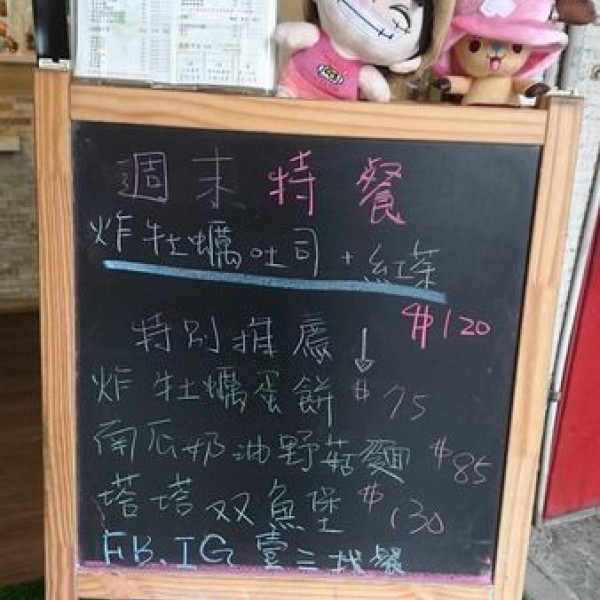 週末特餐
炸牡蠣吐司 + 紅茶
$120
特別推薦↓
炸牡蠣蛋餅 $75
南瓜奶油野菇麵 $85
塔塔双魚堡 $130
FB.IG 壹三找餐